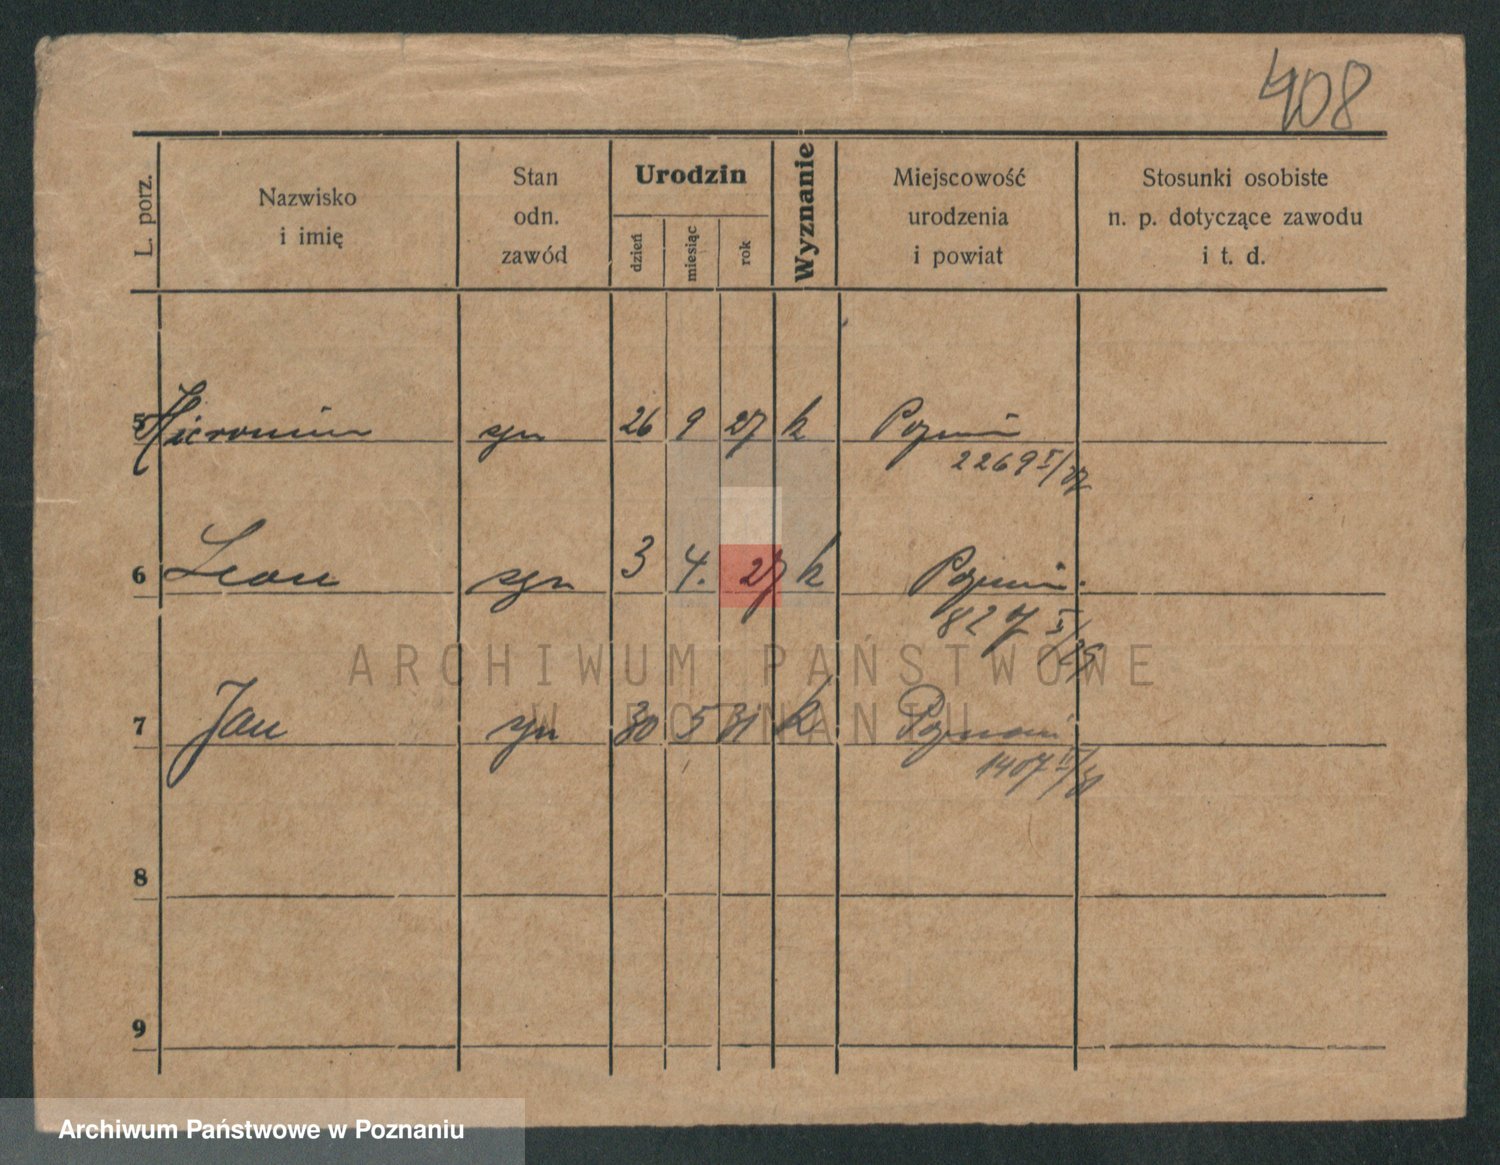 408
L. porz.
Nazwisko
i imię
Stan
odn.
zawód
Urodzin
dzień
miesiąc
rok
Wyznanie
Miejscowość
urodzenia
i powiat
Stosunki osobiste
n. p. dotyczące zawodu
i t. d.
5 Hieronim syn 26 9 27 k Poznań
2269 I/27
6 Leon syn 3 4. 27 k Poznań.
827 I/
7 Jan syn 30 5 31 k Poznań
1407 II/31
8
9
ARCHIWUM PAŃSTWOWE
W POZNANIU
Archiwum Państwowe w Poznaniu